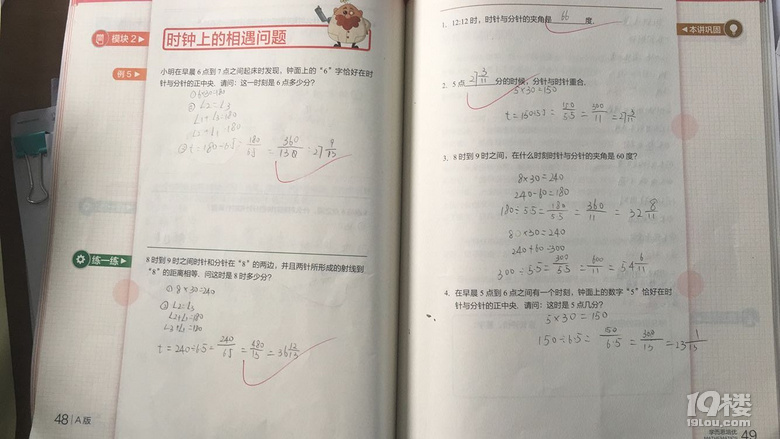 模块2
时钟上的相遇问题
例5
小明在早晨6点到7点之间起床时发现，钟面上的“6”字恰好在时
针与分针的正中央. 请问：这一时刻是6点多少分?
① 6×30=180
②
∠2=∠3
∠1+∠3=180
∠1+∠2=180
练一练
8时到9时之间时针和分针在“8”的两边，并且两针所形成的射线到
“8”的距离相等. 问这时是8时多少分?
① 8×30=240
② ∠2=∠3
t=240÷6.5=240/6.5=480/13=36 12/13
48 A版
本讲巩固
1. 12:12时，时针与分针的夹角是 66 度.
2. 5点 27 3/11 分的时候，分针与时针重合.
5×30=150
t=150÷5.5=150/5.5=300/11=27 3/11
3. 8时到9时之间，在什么时刻时针与分针的夹角是60度?
8×30=240
240-60=180
180÷5.5=180/5.5=360/11=32 8/11
8×30=240
240+60=300
300÷5.5=300/5.5=600/11=54 6/11
4. 在早晨5点到6点之间有一个时刻，钟面上的数字“5”恰好在时
针与分针的正中央. 请问：这时是5点几分?
5×30=150
150÷6.5=150/6.5=300/13=23 1/13
学而思培优
49
19楼
19lou.com